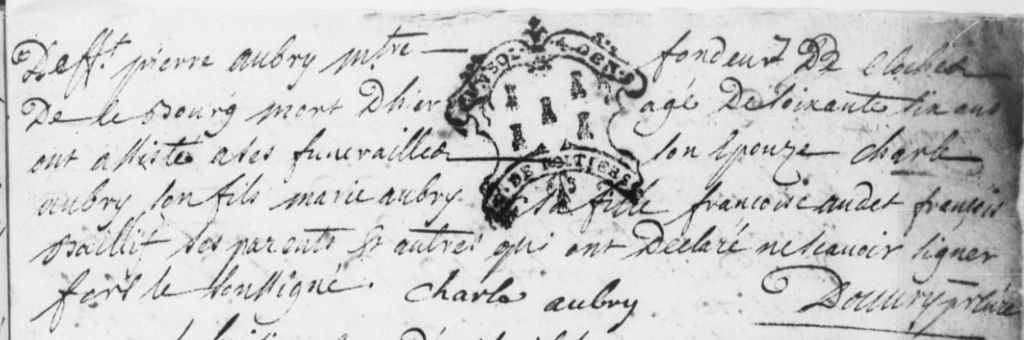 Deff.t pierre aubry mtre — fondeur De cloches
De ce Bourg mort Dhier agé De soixante six ans
ont assisté a ses funerailles — son Epouze charle
aubry son fils marie aubry sa fille francoise audet françois
Baillif ses parents et autres qui ont Declaré ne scavoir signer
fors le soussigné. charle aubry
DE POITIERS